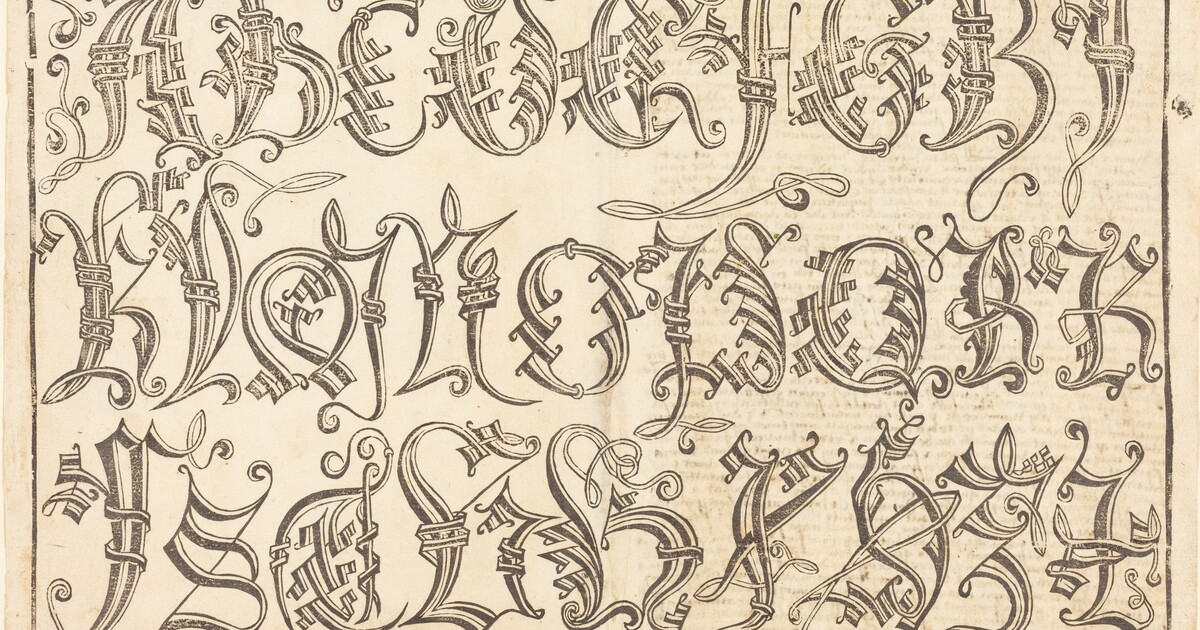 A B C D E F G H I
K L M N O P Q R R
S S T V W X Y Z Z